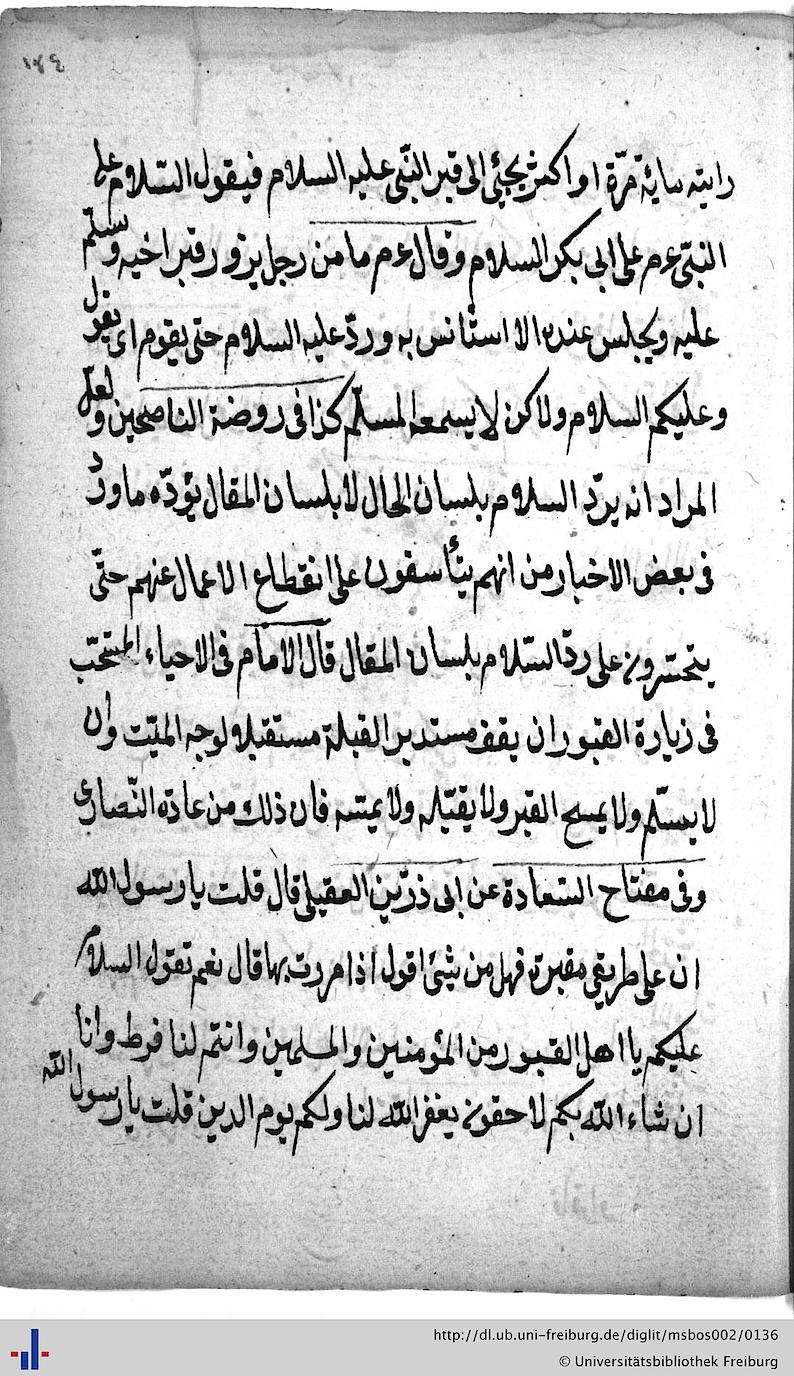 ١٣٤
رايته مائة مرّة او اكثر يجيئ الى قبر النّبى عليه السلام فيقول السّلام على
النبىّ ءم على ابى بكر السلام وقال ءم ما من رجل يزور قبر اخيه وسلّم
عليه ويجلس عنده الا استأنس به وردّ عليه السلام حتى يقوم اى يقول
وعليكم السلام ولاكن لا يسمعه المسلّم كذا فى روضة الناصحين ولعلّ
المراد انه يردّ السلام بلسان الحال لا بلسان المقال يؤدّه ما ورد
فى بعض الاخبار من انهم يتأسفون على انقطاع الاعمال عنهم حتّى
يتحسّرون على ردّ السّلام بلسان المقال قال الامام فى الاحياء المستحبّ
فى زيارة القبور ان يقف مستدبر القبلة مستقبلا لوجه الميّت وان
لا يسلّم ولا يمسح القبر ولا يقبّله ولا يمسّه فان ذلك من عادة النّصارى
وفى مفتاح السّعادة عن ابى ذرّين العقيلى قال قلت يا رسول الله
ان على طريقى مقبرة فهل من شيئ اقول اذا مررت بها قال نعم تقول السلام
عليكم يا اهل القبور من المؤمنين والمسلمين وانتم لنا فرط وانا
ان شاء الله بكم لاحقون يغفر الله لنا ولكم يوم الدين قلت يا رسول الله
http://dl.ub.uni-freiburg.de/diglit/msbos002/0136
© Universitätsbibliothek Freiburg